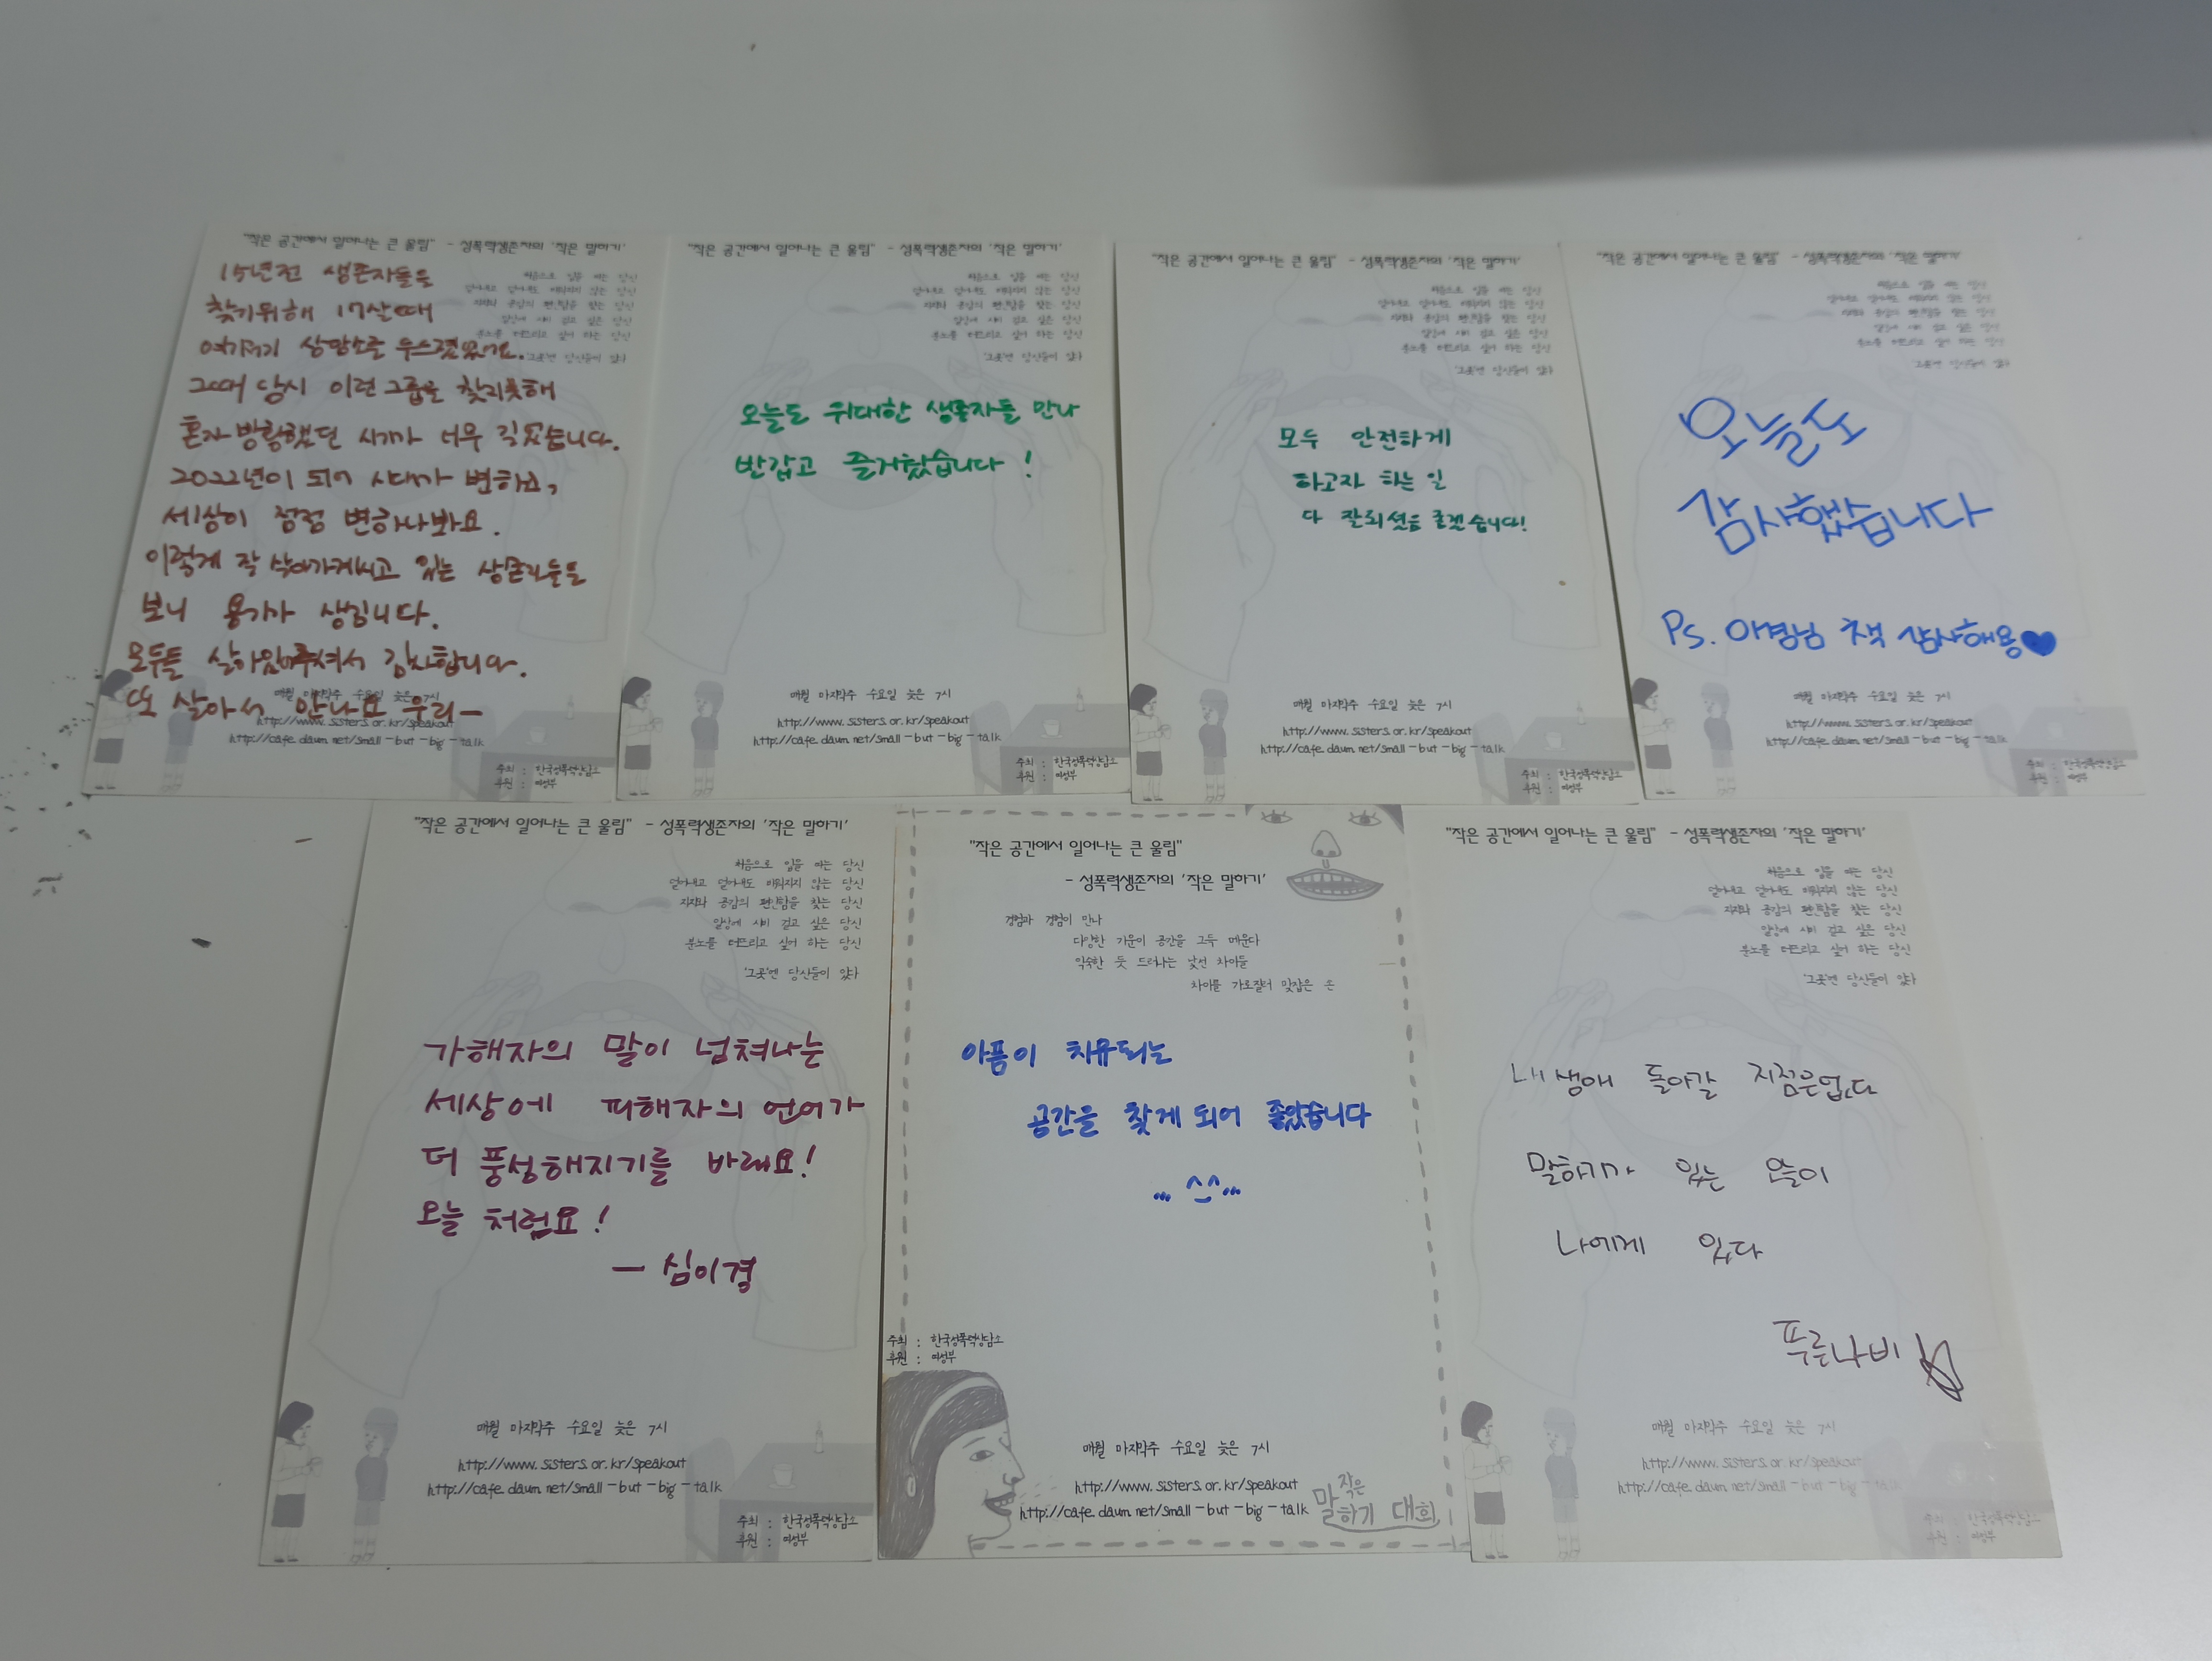 "작은 공간에서 일어나는 큰 울림" - 성폭력생존자의 '작은 말하기'
처음으로 입을 떼는 당신
덜어내고 덜어내도 비워지지 않는 당신
지지와 공감의 편안함을 찾는 당신
일상에 시비 걸고 싶은 당신
분노를 터뜨리고 싶어 하는 당신
'그곳'엔 당신들이 있다
15년전 생존자들을
찾기위해 17살때
여기저기 상담소를
그때 당시 이런 그룹을 찾지못해
혼자 방황했던 시기가 너무 길었습니다.
2022년이 되어 시대가 변하고,
세상이 점점 변하나봐요.
이렇게 잘 살아가계시고 있는 생존자들을
보니 용기가 생깁니다.
모두들 살아있어주셔서 감사합니다.
또 살아서 만나요 우리-
매월 마지막주 수요일 늦은 7시
http://www.sisters.or.kr/speakout
http://cafe.daum.net/small-but-big-talk
주최 : 한국성폭력상담소
후원 : 여성부
"작은 공간에서 일어나는 큰 울림" - 성폭력생존자의 '작은 말하기'
처음으로 입을 떼는 당신
덜어내고 덜어내도 비워지지 않는 당신
지지와 공감의 편안함을 찾는 당신
일상에 시비 걸고 싶은 당신
분노를 터뜨리고 싶어 하는 당신
'그곳'엔 당신들이 있다
오늘도 위대한 생존자들 만나
반갑고 즐거웠습니다!
매월 마지막주 수요일 늦은 7시
http://www.sisters.or.kr/speakout
http://cafe.daum.net/small-but-big-talk
주최 : 한국성폭력상담소
후원 : 여성부
"작은 공간에서 일어나는 큰 울림" - 성폭력생존자의 '작은 말하기'
처음으로 입을 떼는 당신
덜어내고 덜어내도 비워지지 않는 당신
지지와 공감의 편안함을 찾는 당신
일상에 시비 걸고 싶은 당신
분노를 터뜨리고 싶어 하는 당신
'그곳'엔 당신들이 있다
모두 안전하게
하고자 하는 일
다 잘되셨음 좋겠습니다!
매월 마지막주 수요일 늦은 7시
http://www.sisters.or.kr/speakout
http://cafe.daum.net/small-but-big-talk
주최 : 한국성폭력상담소
후원 : 여성부
"작은 공간에서 일어나는 큰 울림" - 성폭력생존자의 '작은 말하기'
처음으로 입을 떼는 당신
덜어내고 덜어내도 비워지지 않는 당신
지지와 공감의 편안함을 찾는 당신
일상에 시비 걸고 싶은 당신
분노를 터뜨리고 싶어 하는 당신
'그곳'엔 당신들이 있다
오늘도
감사했습니다
Ps. 이경님 책 감사해용♥
매월 마지막주 수요일 늦은 7시
http://www.sisters.or.kr/speakout
http://cafe.daum.net/small-but-big-talk
주최 : 한국성폭력상담소
후원 : 여성부
"작은 공간에서 일어나는 큰 울림" - 성폭력생존자의 '작은 말하기'
처음으로 입을 떼는 당신
덜어내고 덜어내도 비워지지 않는 당신
지지와 공감의 편안함을 찾는 당신
일상에 시비 걸고 싶은 당신
분노를 터뜨리고 싶어 하는 당신
'그곳'엔 당신들이 있다
가해자의 말이 넘쳐나는
세상에 피해자의 언어가
더 풍성해지기를 바래요!
오늘 처럼요!
- 심이경
매월 마지막주 수요일 늦은 7시
http://www.sisters.or.kr/speakout
http://cafe.daum.net/small-but-big-talk
주최 : 한국성폭력상담소
후원 : 여성부
"작은 공간에서 일어나는 큰 울림"
- 성폭력생존자의 '작은 말하기'
경험과 경험이 만나
다양한 기운이 공간을 그득 메운다
익숙한 듯 드러나는 낯선 차이들
차이를 가로질러 맞잡은 손
아픔이 치유되는
공간을 찾게 되어 좋았습니다
... ^_^ ...
주최 : 한국성폭력상담소
후원 : 여성부
매월 마지막주 수요일 늦은 7시
http://www.sisters.or.kr/speakout
http://cafe.daum.net/small-but-big-talk
작은
말하기 대회
"작은 공간에서 일어나는 큰 울림" - 성폭력생존자의 '작은 말하기'
처음으로 입을 떼는 당신
덜어내고 덜어내도 비워지지 않는 당신
지지와 공감의 편안함을 찾는 당신
일상에 시비 걸고 싶은 당신
분노를 터뜨리고 싶어 하는 당신
'그곳'엔 당신들이 있다
내 생애 돌아갈 지점은없다
말하기가 있는 오늘이
나에게 있다
푸른나비
매월 마지막주 수요일 늦은 7시
http://www.sisters.or.kr/speakout
http://cafe.daum.net/small-but-big-talk
주최 : 한국성폭력상담소
후원 : 여성부